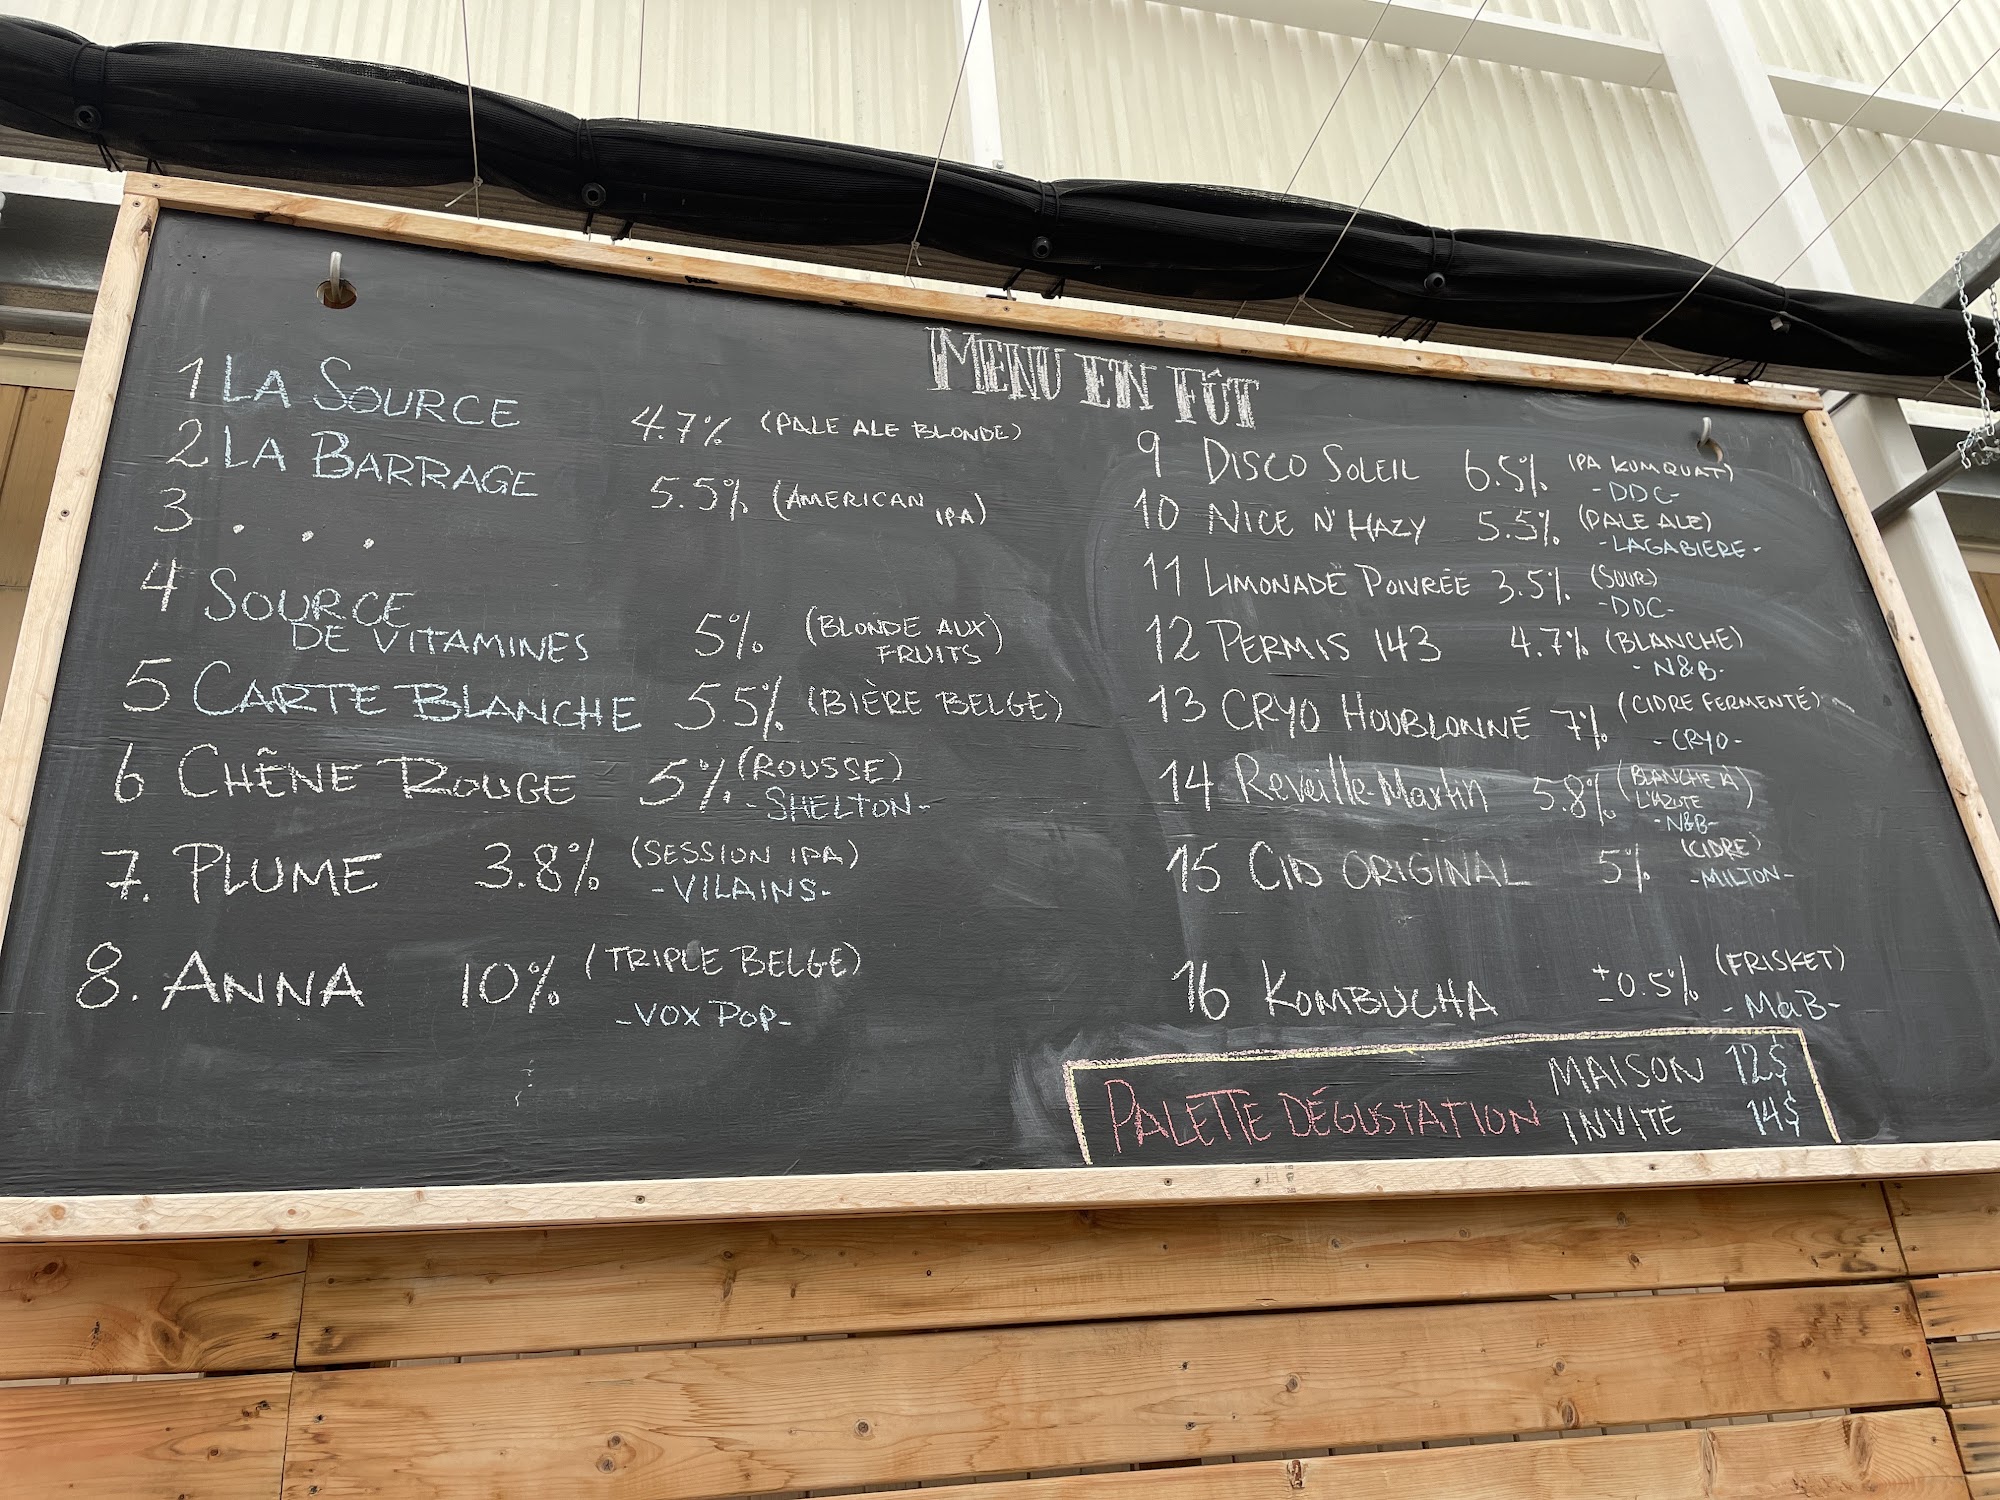 MENU EN FÛT
1 LA SOURCE 4.7% (PALE ALE BLONDE)
2 LA BARRAGE 5.5% (AMERICAN IPA)
3 . . .
4 SOURCE
DE VITAMINES 5% (BLONDE AUX
FRUITS)
5 CARTE BLANCHE 5.5% (BIÈRE BELGE)
6 CHÊNE ROUGE 5% (ROUSSE)
-SHELTON-
7. PLUME 3.8% (SESSION IPA)
-VILAINS-
8. ANNA 10% (TRIPLE BELGE)
-VOX POP-
9 DISCO SOLEIL 6.5% (IPA KUMQUAT)
-DDC-
10 NICE N' HAZY 5.5% (PALE ALE)
-LAGABIERE-
11 LIMONADE POIVRÉE 3.5% (SOUR)
-DDC-
12 PERMIS 143 4.7% (BLANCHE)
-N&B-
13 CRYO HOUBLONNÉ 7% (CIDRE FERMENTÉ)
-CRYO-
14 Reveille-Martin 5.8% (BLANCHE À
L'AZOTE)
-N&B-
15 CID ORIGINAL 5% (CIDRE)
-MILTON-
16 KOMBUCHA ±0.5% (FRISKET)
-MaB-
PALETTE DÉGUSTATION MAISON 12$
INVITÉ 14$